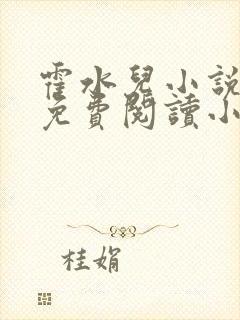 霍水兒小說
免費閱讀小
桂娟